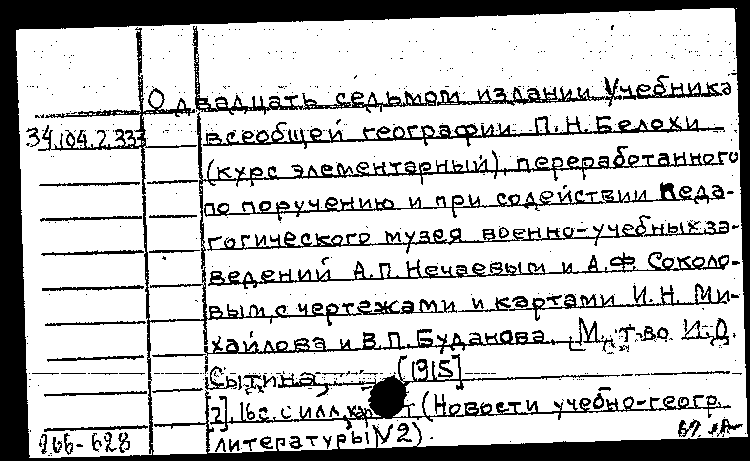 О двадцать седьмом издании Учебника
34.104.2.333 всеобщей географии П.Н. Белохи
(курс элементарный), переработанного
по поручению и при содействии Педа-
гогического музея военно-учебных за-
ведений А.П. Нечаевым и А.Ф. Соколо-
вым, с чертежами и картами И.Н. Ми-
хайлова и В.П. Буданова. М., т-во И.Д.
Сытина, [1915]
[2], 16 с. с илл., карт (Новости учебно-геогр.
литературы N2).
266-628